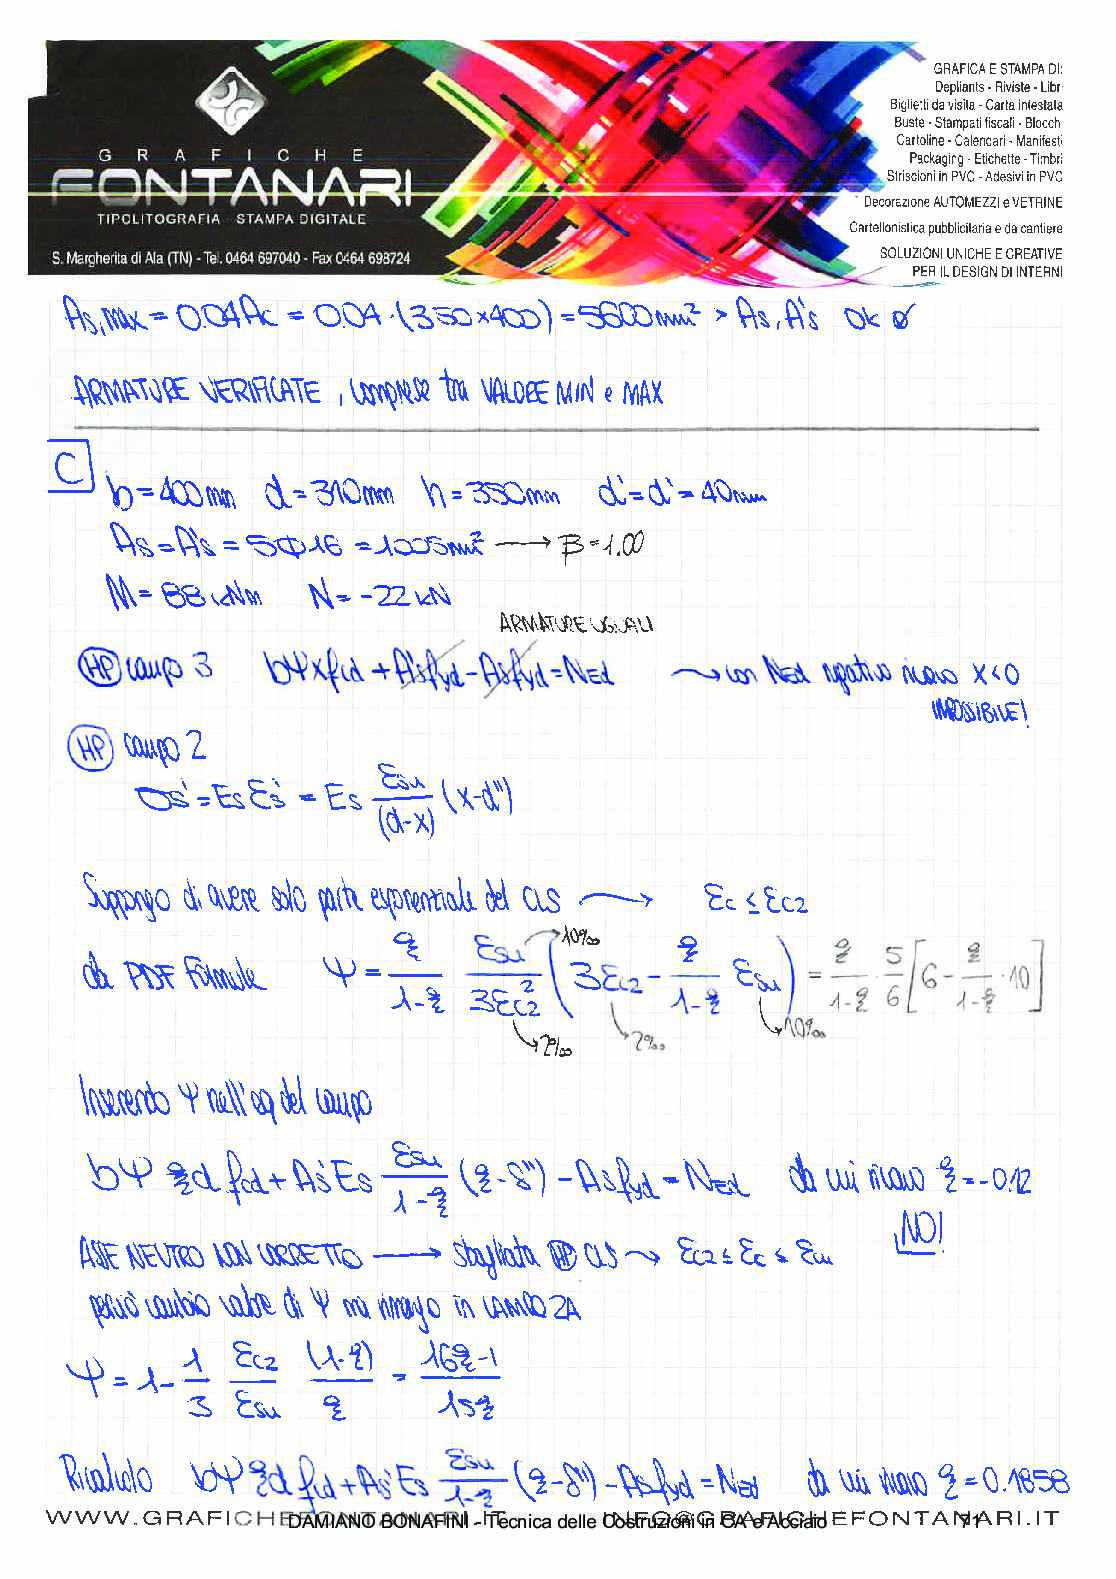 GRAFICHE
FONTANARI
TIPOLITOGRAFIA STAMPA DIGITALE
S. Margherita di Ala (TN) - Tel. 0464 697040 - Fax 0464 698724
GRAFICA E STAMPA DI:
Depliants - Riviste - Libr
Biglietti da visita - Carta intestata
Buste - Stampati fiscali - Blocch
Cartoline - Calendari - Manifesti
Packaging - Etichette - Timbri
Striscioni in PVC - Adesivi in PVC
Decorazione AUTOMEZZI e VETRINE
Cartellonistica pubblicitaria e da cantiere
SOLUZIONI UNICHE E CREATIVE
PER IL DESIGN DI INTERNI
As,max = 0.04Ac = 0.04 · (350×400) = 5600mm² > As, A's OK
ARMATURE VERIFICATE, comprese tra VALORE MIN e MAX
C
b=400mm d=310mm h=350mm d'=d"=40mm
As=A's = 5Φ16 = 1005mm² → β=1.00
M= 88 kNm N= -22 kN
ARMATURE UGUALI
HP campo 3 bΨxfcd + A'sfyd - Asfyd = NEd → con NEd negativo ricavo x<0
IMPOSSIBILE!
HP campo 2
σs' = Es εs' = Es εsu/(d-x) (x-d")
Suppongo di avere solo parte esponenziale del CLS → εc ≤ εc2
da PDF Formule Ψ = ξ/(1-ξ) εsu/(3εc2²) (3εc2 - ξ/(1-ξ) εsu) = ξ/(1-ξ) · 5/6 [6 - ξ/(1-ξ) · 10]
10‰
2‰ 2‰ 10‰
Inserendo Ψ nell'eq del campo
bΨ ξd fcd + A's Es εsu/(1-ξ) (ξ-δ") - Asfyd = NEd da cui ricavo ξ = -0.12
NO!
ASSE NEUTRO NON CORRETTO → sbagliata HP CLS → εc2 ≤ εc ≤ εcu
perciò cambio valore di Ψ ma rimango in CAMPO 2A
Ψ = 1 - 1/3 εc2/εsu (1-ξ)/ξ = (16ξ-1)/15ξ
Ricalcolo bΨ ξd fcd + A's Es εsu/(1-ξ) (ξ-δ") - Asfyd = NEd da cui ricavo ξ = 0.1858
WWW.GRAFICHEFONTANARI.IT
DAMIANO BONAFINI - Tecnica delle Costruzioni in CA e Acciaio
71